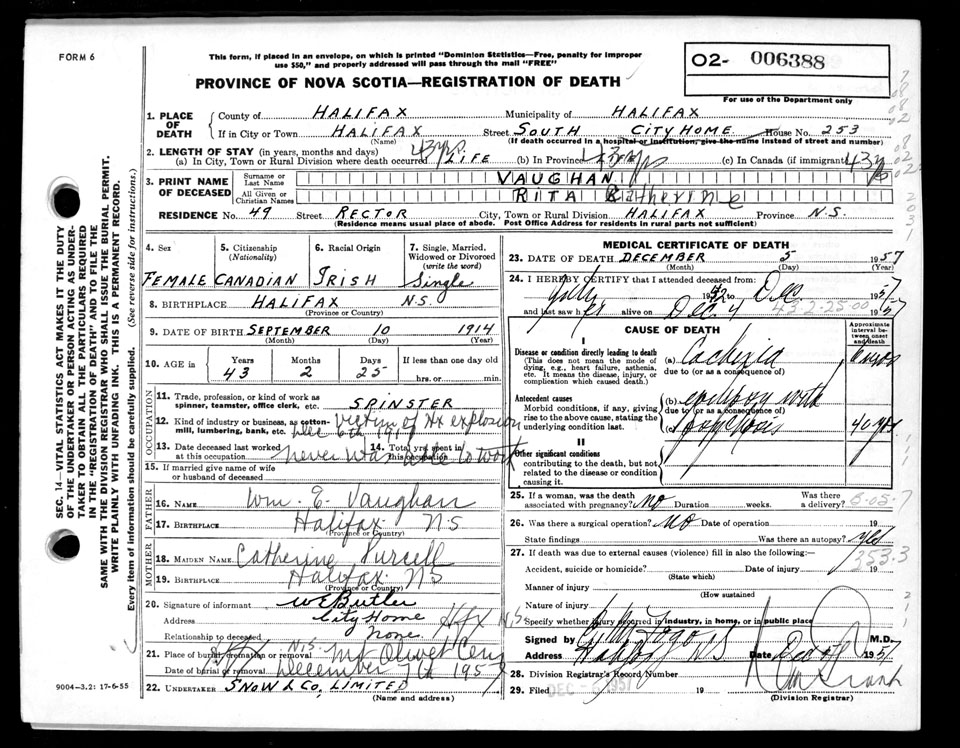 FORM 6
This form, if placed in an envelope, on which is printed "Dominion Statistics—Free, penalty for improper
use $50," and properly addressed will pass through the mail "FREE"
O2- 006388
For use of the Department only
PROVINCE OF NOVA SCOTIA—REGISTRATION OF DEATH
1. PLACE OF DEATH { County of HALIFAX Municipality of HALIFAX
If in City or Town HALIFAX Street SOUTH CITY HOME House No. 253
(Name) (If death occurred in a hospital or institution, give the name instead of street and number)
2. LENGTH OF STAY (in years, months and days)
(a) In City, Town or Rural Division where death occurred 43 yrs. LIFE (b) In Province LIFE 43 yrs (c) In Canada (if immigrant) 43 y
3. PRINT NAME OF DECEASED { Surname or Last Name VAUGHAN
All Given or Christian Names RITA Katherine
RESIDENCE No. 49 Street RECTOR City, Town or Rural Division HALIFAX Province N.S.
(Residence means usual place of abode. Post Office Address for residents in rural parts not sufficient)
SEC. 14—VITAL STATISTICS ACT MAKES IT THE DUTY
OF THE UNDERTAKER OR PERSON ACTING AS UNDER-
TAKER TO OBTAIN ALL THE PARTICULARS REQUIRED
IN THE "REGISTRATION OF DEATH" AND TO FILE THE
SAME WITH THE DIVISION REGISTRAR WHO SHALL ISSUE THE BURIAL PERMIT.
WRITE PLAINLY WITH UNFADING INK. THIS IS A PERMANENT RECORD.
Every item of information should be carefully supplied. (See reverse side for instructions.)
4. Sex 5. Citizenship (Nationality) 6. Racial Origin 7. Single, Married, Widowed or Divorced (write the word)
FEMALE CANADIAN IRISH Single
8. BIRTHPLACE HALIFAX N.S.
(Province or Country)
9. DATE OF BIRTH SEPTEMBER 10 1914
(Month) (Day) (Year)
10. AGE Years Months Days If less than one day old
43 2 25 hrs. or min.
OCCUPATION
11. Trade, profession, or kind of work as
spinner, teamster, office clerk, etc. SPINSTER
12. Kind of industry or business, as cotton-
mill, lumbering, bank, etc. victim of Hx explosion
Dec 6th 1917
13. Date deceased last worked at this occupation 14. Total yrs spent in this occupation
never was able to work
15. If married give name of wife
or husband of deceased
FATHER
16. NAME Wm. E. Vaughan
17. BIRTHPLACE Halifax NS
(Province or Country)
MOTHER
18. MAIDEN NAME Catherine Purcell
19. BIRTHPLACE Halifax NS
(Province or Country)
20. Signature of informant W E Butler
Address City Home Hfx N.S.
Relationship to deceased None
21. Place of burial, cremation or removal N.S. Mt Olivet Cem
Date of burial or removal December 7th 1957
22. UNDERTAKER SNOW & CO. LIMITED
(Name and address)
9004—3.2: 17-6-55
MEDICAL CERTIFICATE OF DEATH
23. DATE OF DEATH DECEMBER 5 1957
(Month) (Day) (Year)
24. I HEREBY CERTIFY that I attended deceased from:
July 1952 to Dec 1957
and last saw her alive on Dec. 4 1957
432-25-00
CAUSE OF DEATH
Approximate interval between onset and death
I
Disease or condition directly leading to death
(This does not mean the mode of
dying, e.g., heart failure, asthenia,
etc. It means the disease, injury, or
complication which caused death.
(a) Cachexia
due to (or as a consequence of)
Antecedent causes
Morbid conditions, if any, giving
rise to the above cause, stating the
underlying condition last.
(b) epilepsy with
due to (or as a consequence of)
(c) psychosis 40 yrs
II
Other significant conditions
contributing to the death, but not
related to the disease or condition
causing it.
25. If a woman, was the death
associated with pregnancy? No Duration weeks. Was there a delivery?
26. Was there a surgical operation? No Date of operation 19
State findings Was there an autopsy? Yes
353.3
27. If death was due to external causes (violence) fill in also the following:—
Accident, suicide or homicide? Date of injury 19
(State which)
Manner of injury
(How sustained
Nature of injury
Specify whether injury occurred in industry, in home, or in public place
Signed by M.D.
Address Halifax NS Date Dec 1957
28. Division Registrar's Record Number
29. Filed DEC 1957 19
(Division Registrar)